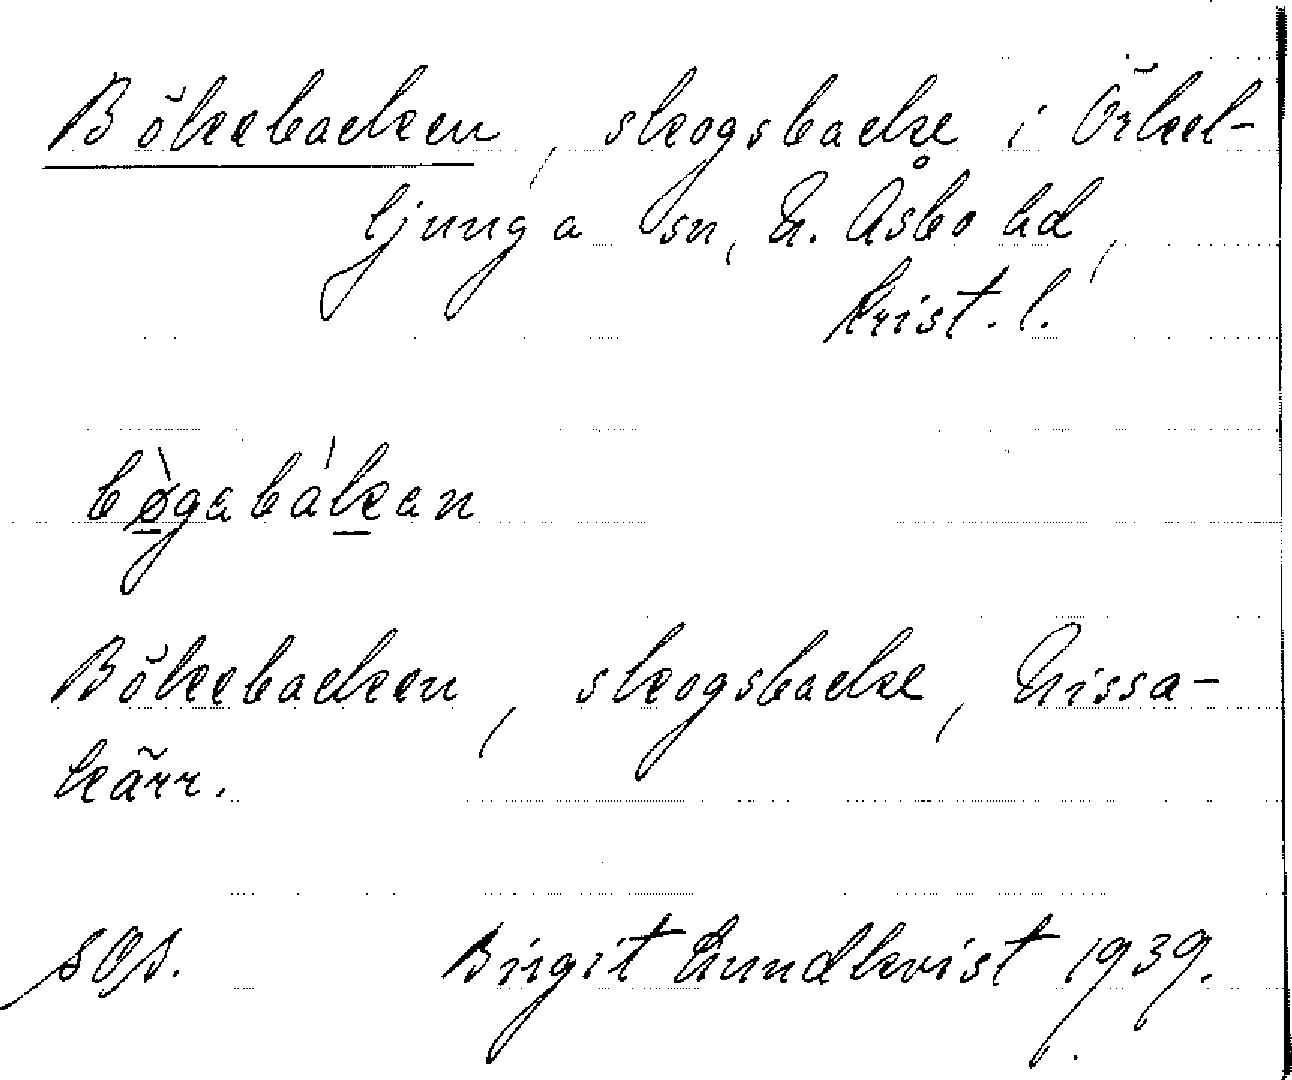 Bökebacken, skogsbacke i Örkel-
ljunga sn, N. Åsbo hd,
Krist. l.
bø̀gabákan
Bökebacken, skogsbacke, Nissa-
kärr.
SOS. Birgit Lundkvist 1939.